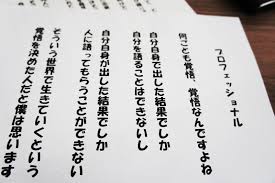 プロフェッショナル
何ごとも覚悟、覚悟なんですよね
自分自身で出した結果でしか
自分を語ることはできないし
自分自身が出した結果でしか
人に語ってもらうことができない
そういう世界で生きていくという
覚悟を決めた人だと僕は思います